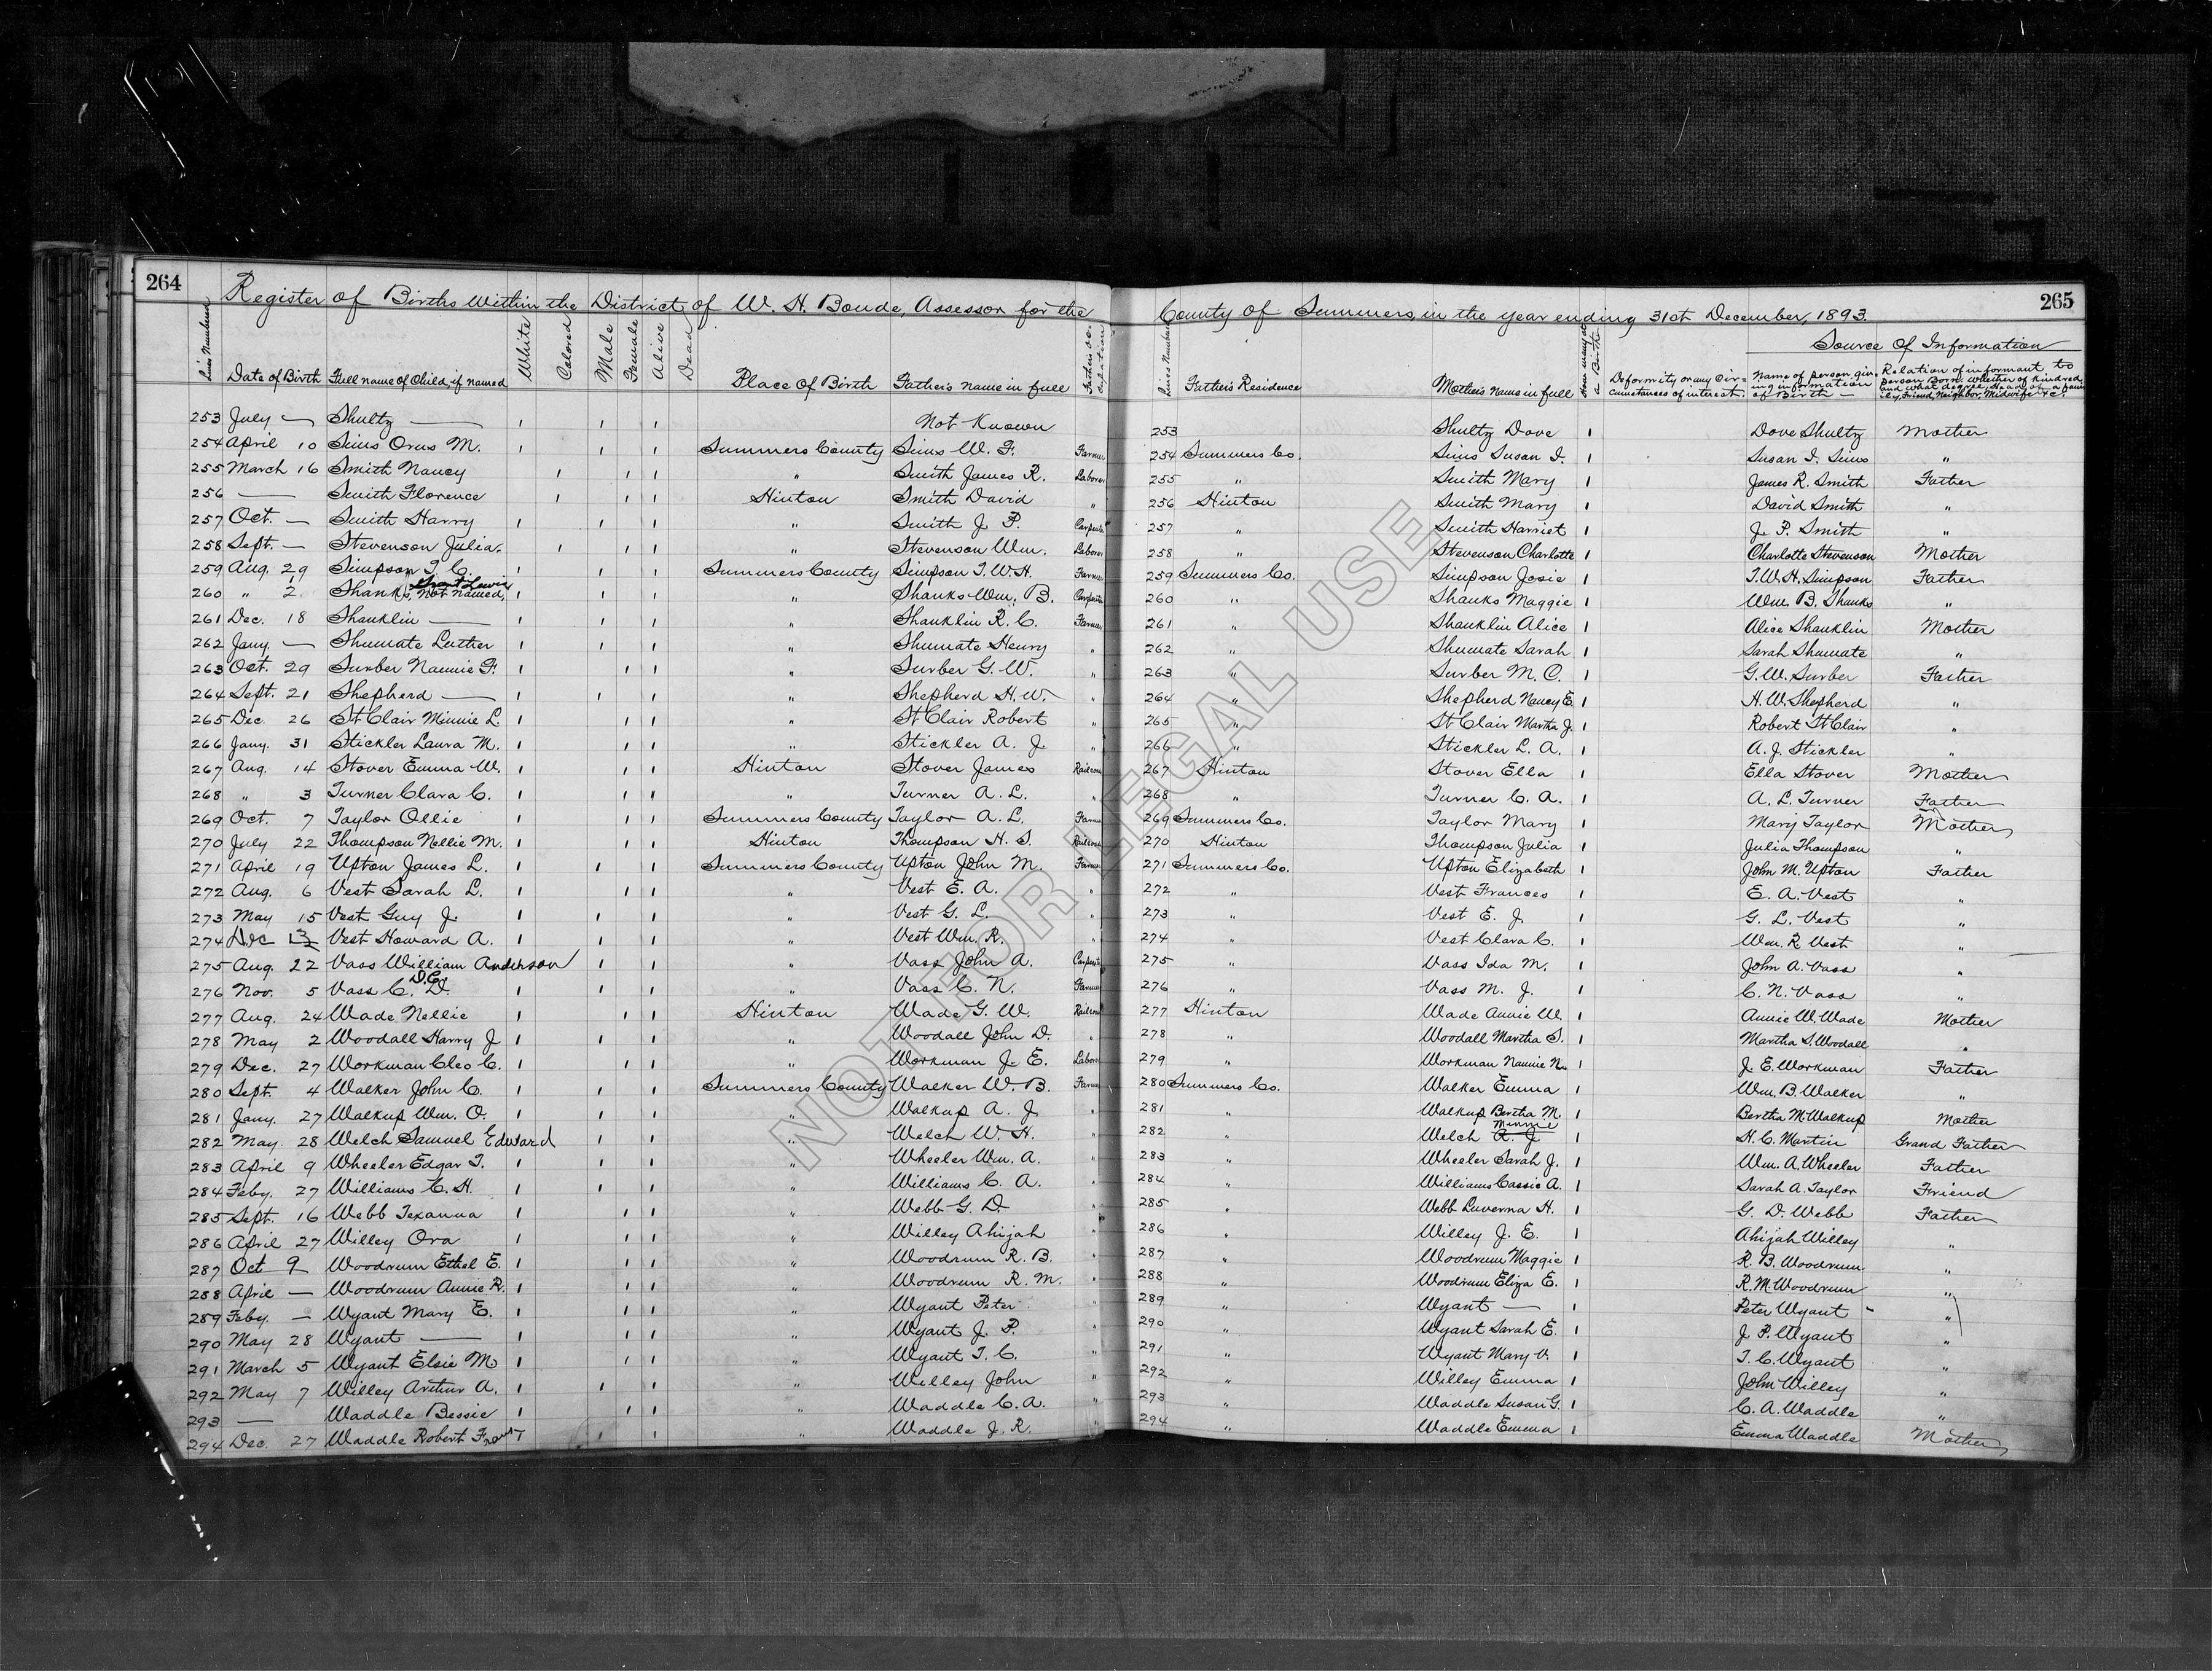 264
Register of Births Within the District of W. H. Boude, Assessor for the
Lines Numbered
Date of Birth Full name of Child, if named White Colored Male Female Alive Dead Place Of Birth Father's name in full Father's Occupation
253 July — Shultz — 1 1 1 Not Known
254 April 10 Sims Orus M. 1 1 1 Summers County Sims W. F. Farmer
255 March 16 Smith Nancy 1 1 1 " Smith James R. Laborer
256 — Smith Florence 1 1 1 Hinton Smith David "
257 Oct. — Smith Harry 1 1 1 " Smith J. P. Carpenter
258 Sept. — Stevenson Julia 1 1 1 " Stevenson Wm. Laborer
259 Aug. 29 Simpson T. C. 1 1 1 Summers County Simpson T. W. H. Farmer
260 " 2 Shanks, Grant Lewis Not Named, 1 1 1 " Shanks Wm. B. Carpenter
261 Dec. 18 Shanklin — 1 1 1 " Shanklin R. C. Farmer
262 Jany. — Shumate Luther 1 1 1 " Shumate Henry "
263 Oct. 29 Surber Nannie F. 1 1 1 " Surber G. W. "
264 Sept. 21 Shepherd — 1 1 1 " Shepherd H. W. "
265 Dec. 26 St Clair Minnie L. 1 1 1 " St Clair Robert "
266 Jany. 31 Stickler Laura M. 1 1 1 " Stickler A. J. "
267 Aug. 14 Stover Emma W. 1 1 1 Hinton Stover James Railroad
268 " 3 Turner Clara C. 1 1 1 " Turner A. L. "
269 Oct. 7 Taylor Ollie 1 1 1 Summers County Taylor A. L. Farmer
270 July 22 Thompson Nellie M. 1 1 1 Hinton Thompson H. S. Railroad
271 April 19 Upton James L. 1 1 1 Summers County Upton John M. Farmer
272 Aug. 6 Vest Sarah L. 1 1 1 " Vest E. A. "
273 May 15 Vest Guy J. 1 1 1 " Vest G. L. "
274 Dec Vest Howard A. 1 1 1 " Vest Wm. R. "
275 Aug. 22 Vass William Anderson 1 1 " Vass John A. Carpenter
276 Nov. 5 Vass C. D. D.C. 1 1 1 " Vass C. N. Farmer
277 Aug. 24 Wade Nellie 1 1 1 Hinton Wade G. W. Railroad
278 May 2 Woodall Harry J 1 1 1 " Woodall John D. "
279 Dec. 27 Workman Cleo C. 1 1 1 " Workman J. E. Labor
280 Sept. 4 Walker John C. 1 1 1 Summers County Walker W. B. Farmer
281 Jany. 27 Walkup Wm. O. 1 1 1 " Walkup A. J. "
282 May 28 Welch Samuel Edward 1 1 " Welch W. H. "
283 April 9 Wheeler Edgar T. 1 1 1 " Wheeler Wm. A. "
284 Feby. 27 Williams C. H. 1 1 1 " Williams C. A. "
285 Sept. 16 Webb Texanna 1 1 1 " Webb G. D. "
286 April 27 Willey Ora 1 1 1 " Willey Ahijah "
287 Oct 9 Woodrum Ethel E. 1 1 1 " Woodrum R. B. "
288 April — Woodrum Annie R. 1 1 1 " Woodrum R. M. "
289 Feby. — Wyant Mary E. 1 1 1 " Wyant Peter "
290 May 28 Wyant — 1 1 1 " Wyant J. P. "
291 March 5 Wyant Elsie M 1 1 1 " Wyant T. C. "
292 May 7 Willey Arthur A. 1 1 1 " Willey John "
293 — Waddle Bessie 1 1 1 " Waddle C. A. "
294 Dec. 27 Waddle Robert 1 1 " Waddle J. R. "
265
County of Summers, in the year ending 31st December, 1893.
Source Of Information
Lines Numbered Father's Residence Mother's Name in full How many at a Birth Deformity or any Circumstances of interest. Name of person giving information of Birth — Relation of informant to person Born; Whether of kindred, and what degree, Head of a family, Friend, Neighbor, Midwife &c.
253 Shultz Dove 1 Dove Shultz Mother
254 Summers Co. Sims Susan I. 1 Susan I. Sims "
255 " Smith Mary 1 James R. Smith Father
256 Hinton Smith Mary 1 David Smith "
257 " Smith Harriet 1 J. P. Smith "
258 " Stevenson Charlotte 1 Charlotte Stevenson Mother
259 Summers Co. Simpson Josie 1 T. W. H. Simpson Father
260 " Shanks Maggie 1 Wm. B. Shanks "
261 " Shanklin Alice 1 Alice Shanklin Mother
262 " Shumate Sarah 1 Sarah Shumate "
263 " Surber M. C. 1 G. W. Surber Father
264 " Shepherd Nancy E. 1 H. W. Shepherd "
265 " St Clair Martha J. 1 Robert St Clair "
266 " Stickler L. A. 1 A. J. Stickler "
267 Hinton Stover Ella 1 Ella Stover Mother
268 " Turner C. A. 1 A. L. Turner Father
269 Summers Co. Taylor Mary 1 Mary Taylor Mother
270 Hinton Thompson Julia 1 Julia Thompson "
271 Summers Co. Upton Elizabeth 1 John M. Upton Father
272 " Vest Frances 1 E. A. Vest "
273 " Vest E. J. 1 G. L. Vest "
274 " Vest Clara C. 1 Wm. R. Vest "
275 " Vass Ida M. 1 John A. Vass "
276 " Vass M. J. 1 C. N. Vass "
277 Hinton Wade Annie W. 1 Annie W. Wade Mother
278 " Woodall Martha S. 1 Martha S. Woodall "
279 " Workman Nannie N. 1 J. E. Workman Father
280 Summers Co. Walker Emma 1 Wm. B. Walker "
281 " Walkup Bertha M. 1 Bertha M. Walkup Mother
282 " Welch Minnie 1 H. C. Martin Grand Father
283 " Wheeler Sarah J. 1 Wm. A. Wheeler Father
284 " Williams Cassie A. 1 Sarah A. Taylor Friend
285 " Webb Luverna H. 1 G. D. Webb Father
286 " Willey J. E. 1 Ahijah Willey "
287 " Woodrum Maggie 1 R. B. Woodrum "
288 " Woodrum Eliza E. 1 R. M Woodrum "
289 " Wyant — 1 Peter Wyant "
290 " Wyant Sarah E. 1 J. P. Wyant "
291 " Wyant Mary V. 1 T. C. Wyant "
292 " Willey Emma 1 John Willey "
293 " Waddle Susan G. 1 C. A. Waddle "
294 " Waddle Emma 1 Emma Waddle Mother
NOT FOR LEGAL USE